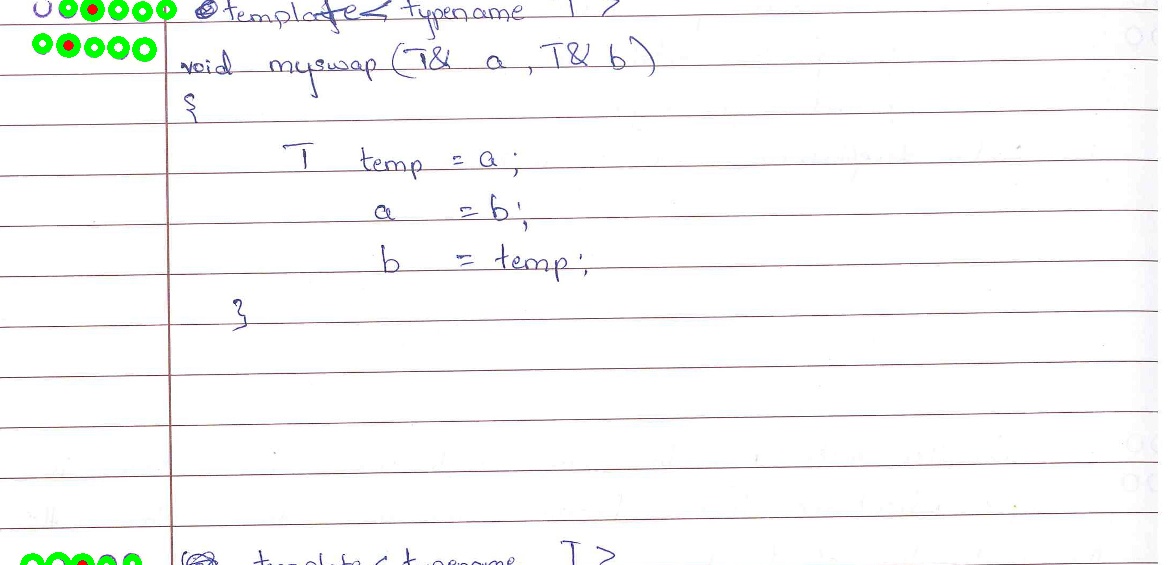 template< typename T >
void myswap (T& a, T& b)
{
T temp = a;
a = b;
b = temp;
}
template < typename T >